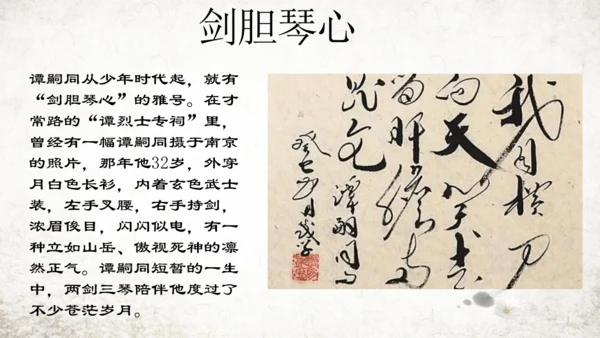 剑胆琴心
谭嗣同从少年时代起，就有
“剑胆琴心”的雅号。在才
常路的“谭烈士专祠”里，
曾经有一幅谭嗣同摄于南京
的照片，那年他32岁，外字
月白色长衫，内着玄色武士
装，左手叉腰，右手持剑，
浓眉俊目，闪闪似电，有一
种立如山岳、傲视死神的凛
然正气。谭嗣同短暂的一生
中，两剑三琴陪伴他度过了
不少苍茫岁月。
我自横刀
向天笑去
留肝胆两
昆仑
谭嗣同句
癸巳